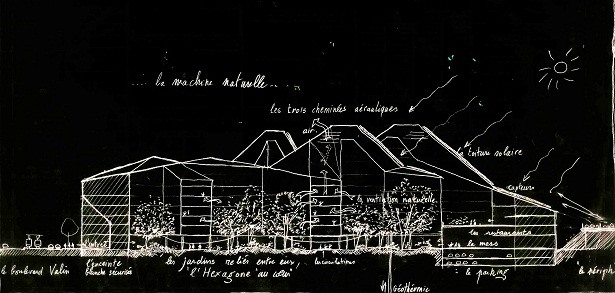 la machine naturelle
les trois cheminées aérauliques
air
la toiture solaire
capteurs
la ventilation naturelle
les restaurants
le mess
l'enceinte
blanche sécurisée
les jardins reliés entre eux,
"l'Hexagone au cœur"
le parking
le boulevard Valin
le périph
Géothermie